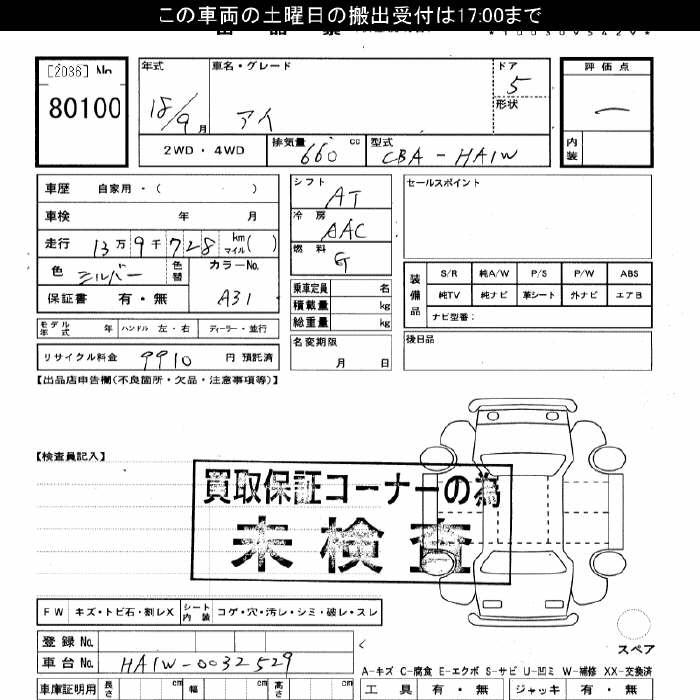 この車両の土曜日の搬出受付は17:00まで
[2036] No
80100
年式 18/9 月
車名・グレード アイ
ドア 5
形状
評価点 ー
内装
2WD・4WD
排気量 660 cc
型式 CBA-HA1W
車歴 自家用・( )
車検 年 月
走行 13万9千728 km マイル( )
色 シルバー 色替
カラーNo. A31
保証書 有・無
モデル年式 年 ハンドル 左・右 ディーラー・並行
リサイクル料金 9910 円 預託済
シフト AT
冷房 AAC
燃料 G
乗車定員 名
積載量 kg
総重量 kg
名変期限 月 日
セールスポイント
装備品
S/R 純A/W P/S P/W ABS
純TV 純ナビ 革シート 外ナビ エアB
ナビ型番:
後日品
【出品店申告欄(不良箇所・欠品・注意事項等)】
【検査員記入】
買取保証コーナーの為
未検査
FW キズ・トビ石・割レX シート内装 コゲ・穴・汚レ・シミ・破レ・スレ
登録No.
車台No. HA1W-0032529
スペア
A-キズ C-腐食 E-エクボ S-サビ U-凹ミ W-補修 XX-交換済
車庫証明用 長さ cm 幅 cm 高さ cm
工具 有・無 ジャッキ 有・無